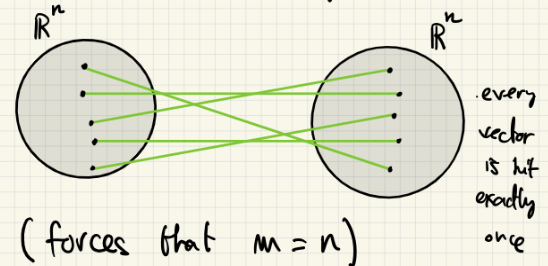 ℝⁿ
ℝⁿ
every
vector
is hit
exactly
once
(forces that m = n)